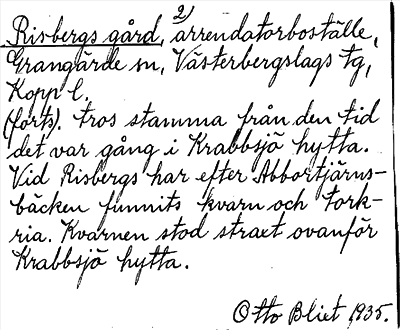 2)
Risbergs gård, arrendatorboställe,
Grangärde sn, Västerbergslags tg,
Kopp l.
(forts). tros stamma från den tid
det var gång i Krabbsjö hytta.
Vid Risbergs har efter Abbortjärns-
bäcken funnits kvarn och tork-
ria. Kvarnen stod straxt ovanför
Krabbsjö hytta.
Otto Blixt, 1935.